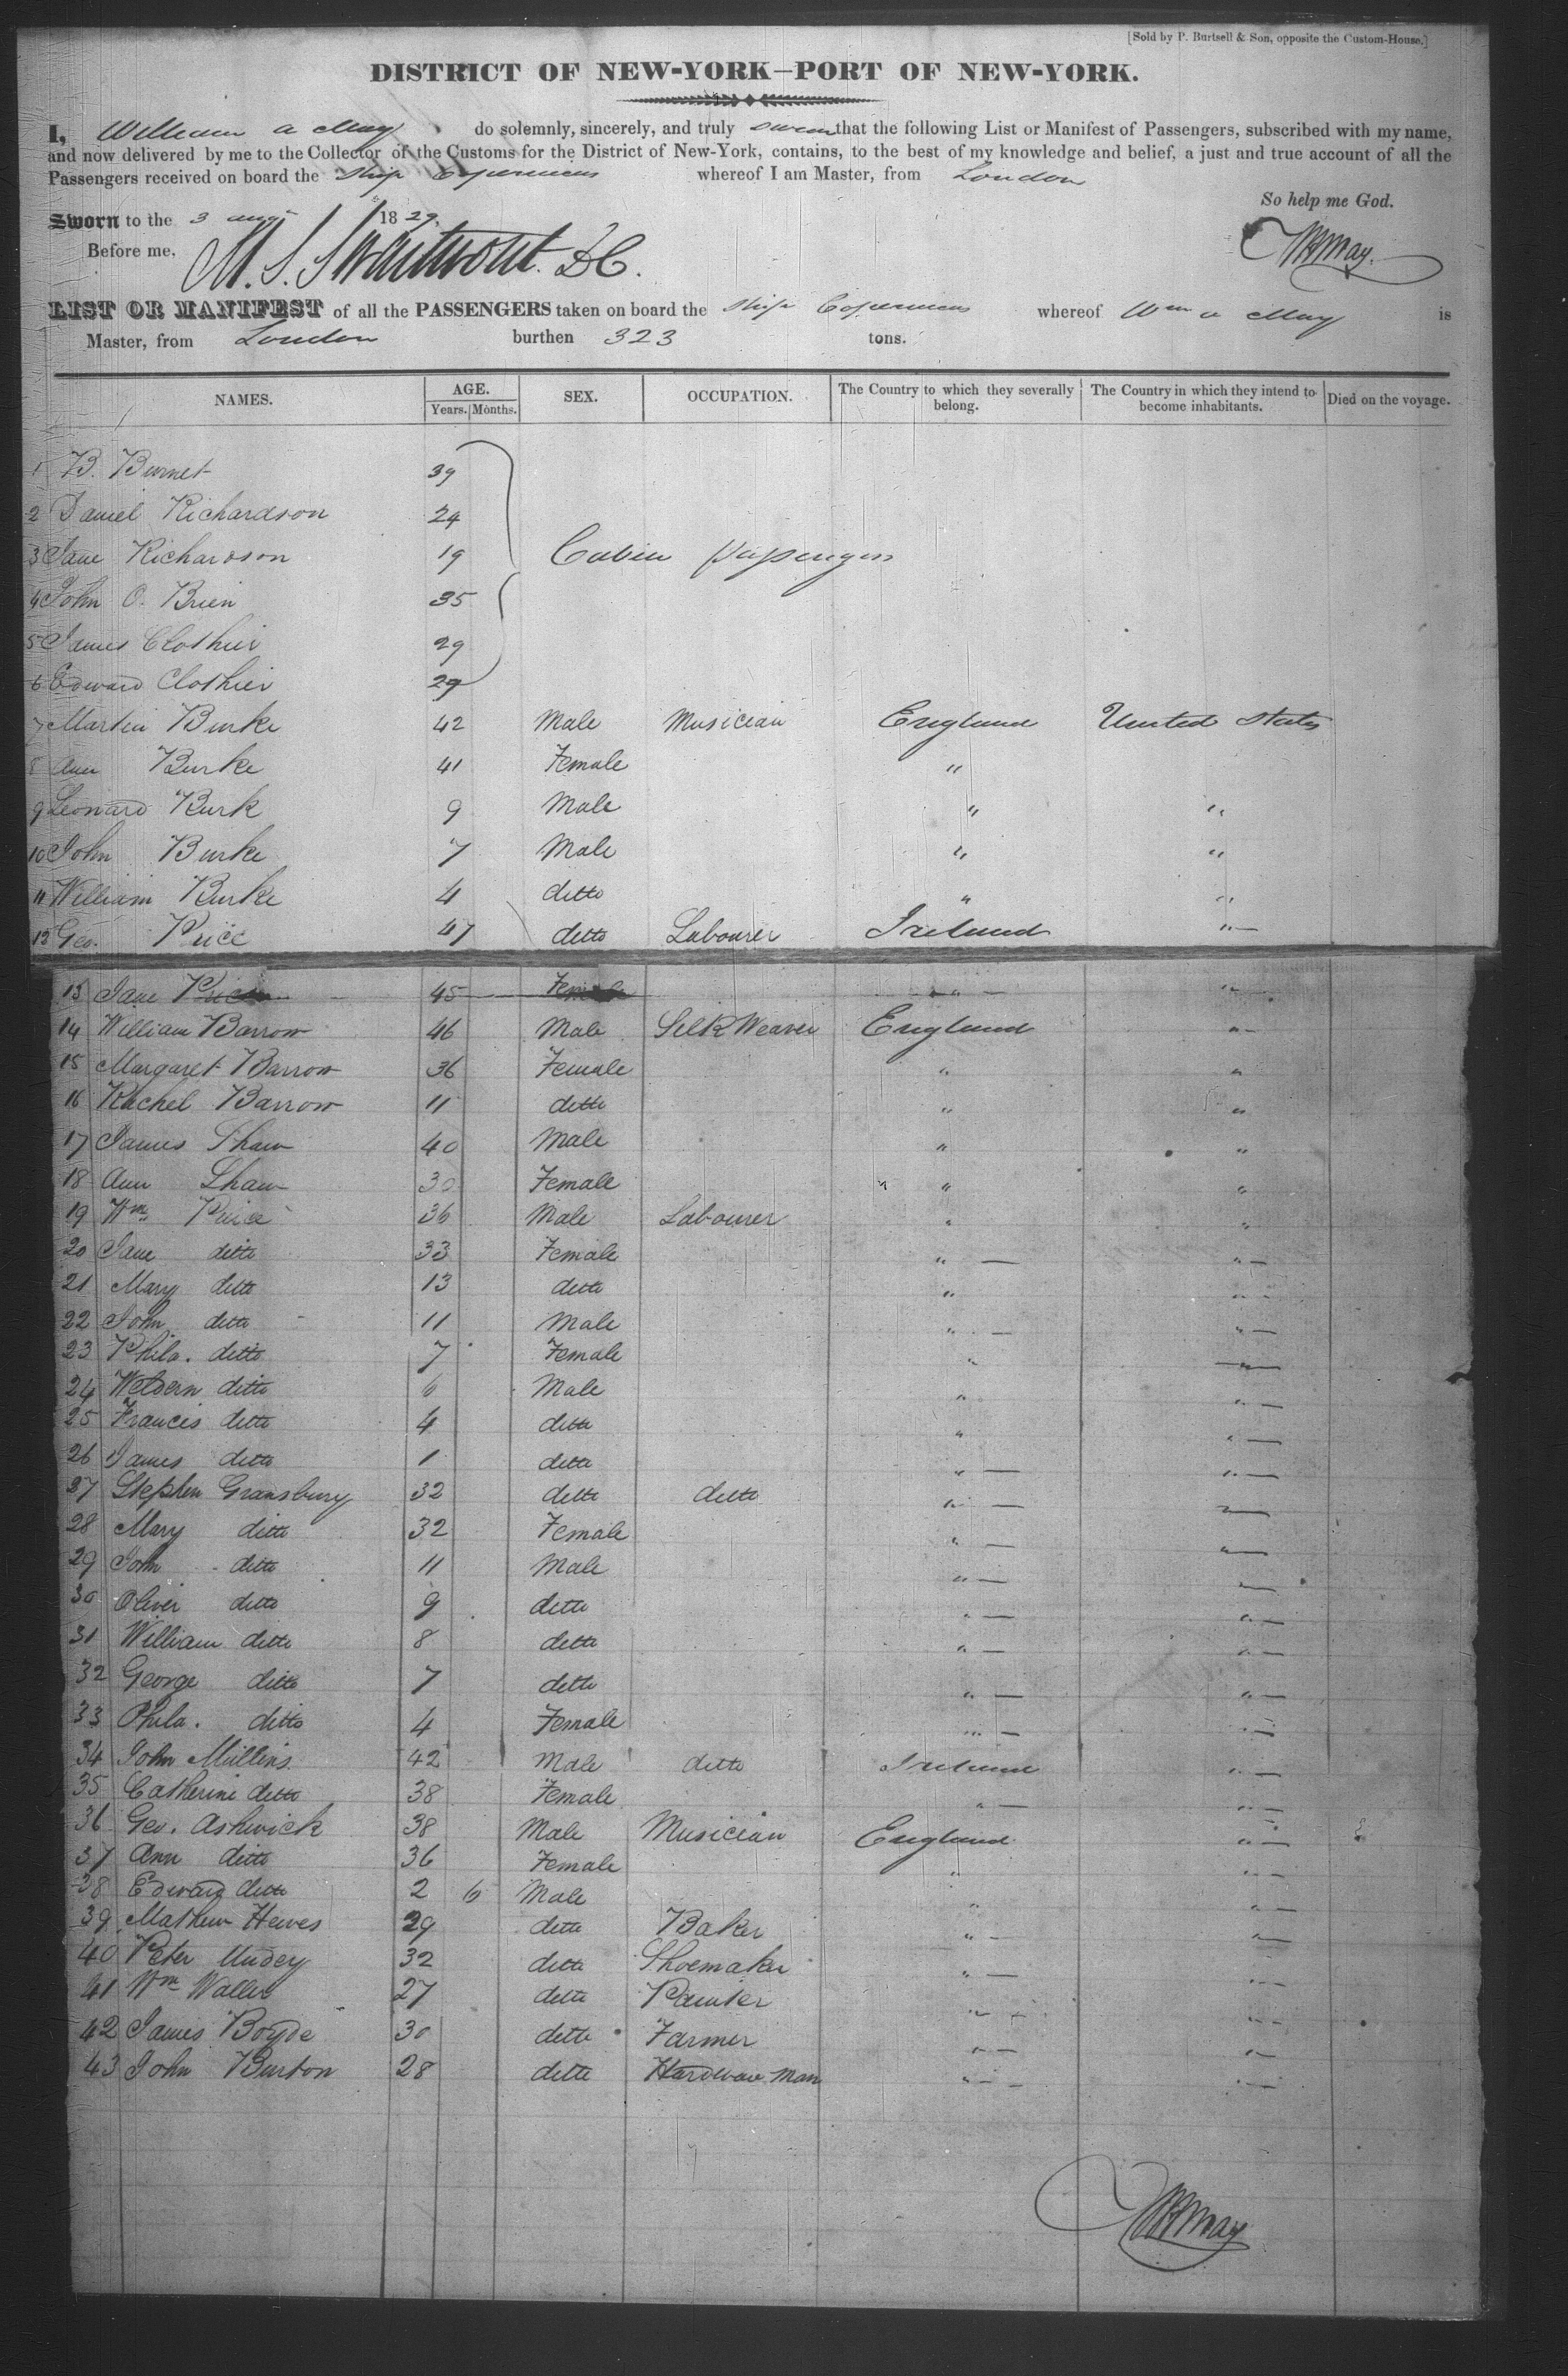 [Sold by P. Burtsell & Son, opposite the Custom-House.]
DISTRICT OF NEW-YORK—PORT OF NEW-YORK.
I, William a May do solemnly, sincerely, and truly swear that the following List or Manifest of Passengers, subscribed with my name,
and now delivered by me to the Collector of the Customs for the District of New-York, contains, to the best of my knowledge and belief, a just and true account of all the
Passengers received on board the Ship Copernicus whereof I am Master, from London
So help me God.
Sworn to the 3 augt 1829.
Before me. M. S. Swartwout. DC. WAMay.
LIST OR MANIFEST of all the PASSENGERS taken on board the Ship Copernicus whereof Wm a May is
Master, from London burthen 323 tons.
NAMES. AGE. SEX. OCCUPATION. The Country to which they severally belong. The Country in which they intend to become inhabitants. Died on the voyage.
Years. Months.
1 B. Burnet 39
2 Daniel Richardson 24
3 Jane Richardson 19 Cabin passengers
4 John O. Brien 35
5 James Clothier 29
6 Edward Clothier 29
7 Martin Burke 42 Male Musician England United States
8 Ann Burke 41 Female "
9 Leonard Burk 9 Male " "
10 John Burke 7 Male " "
11 William Burke 4 ditto " "
12 Geo. Price 47 ditto Labourer Ireland "
13 Jane Price 45 Female " "
14 William Barrow 46 Male Silk Weaver England "
15 Margaret Barrow 36 Female " "
16 Rachel Barrow 11 ditto " "
17 James Shaw 40 Male " "
18 Ann Shaw 30 Female " "
19 Wm Price 36 Male Labourer " "
20 Jane ditto 33 Female " "
21 Mary ditto 13 ditto " "
22 John ditto 11 Male " "
23 Phila. ditto 7 Female " "
24 ditto 6 Male " "
25 Francis ditto 4 ditto " "
26 James ditto 1 ditto " "
27 Stephen Gransbury 32 ditto ditto " "
28 Mary ditto 32 Female " "
29 John ditto 11 Male " "
30 Oliver ditto 9 ditto " "
31 William ditto 8 ditto " "
32 George ditto 7 ditto " "
33 Phila. ditto 4 Female " "
34 John Mullins 42 Male ditto Ireland "
35 Catherine ditto 38 Female " "
36 Geo. Ashwick 38 Male Musician England "
37 Ann ditto 36 Female " "
38 Edward ditto 2 6 Male " "
39 Mathew Hewes 29 ditto Baker " "
40 Peter Undey 32 ditto Shoemaker " "
41 Wm Waller 27 ditto Painter " "
42 James Boyde 30 ditto Farmer " "
43 John Burton 28 ditto Hardware Man " "
WAMay